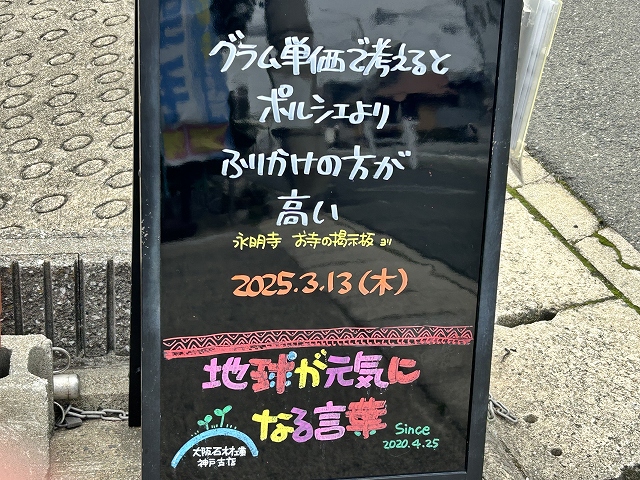 グラム単価で考えると
ポルシェより
ふりかけの方が
高い
永明寺 お寺の掲示板 ヨリ
2025.3.13(木)
地球が元気に
なる言葉
Since
2020.4.25
大阪石材工業
神戸店